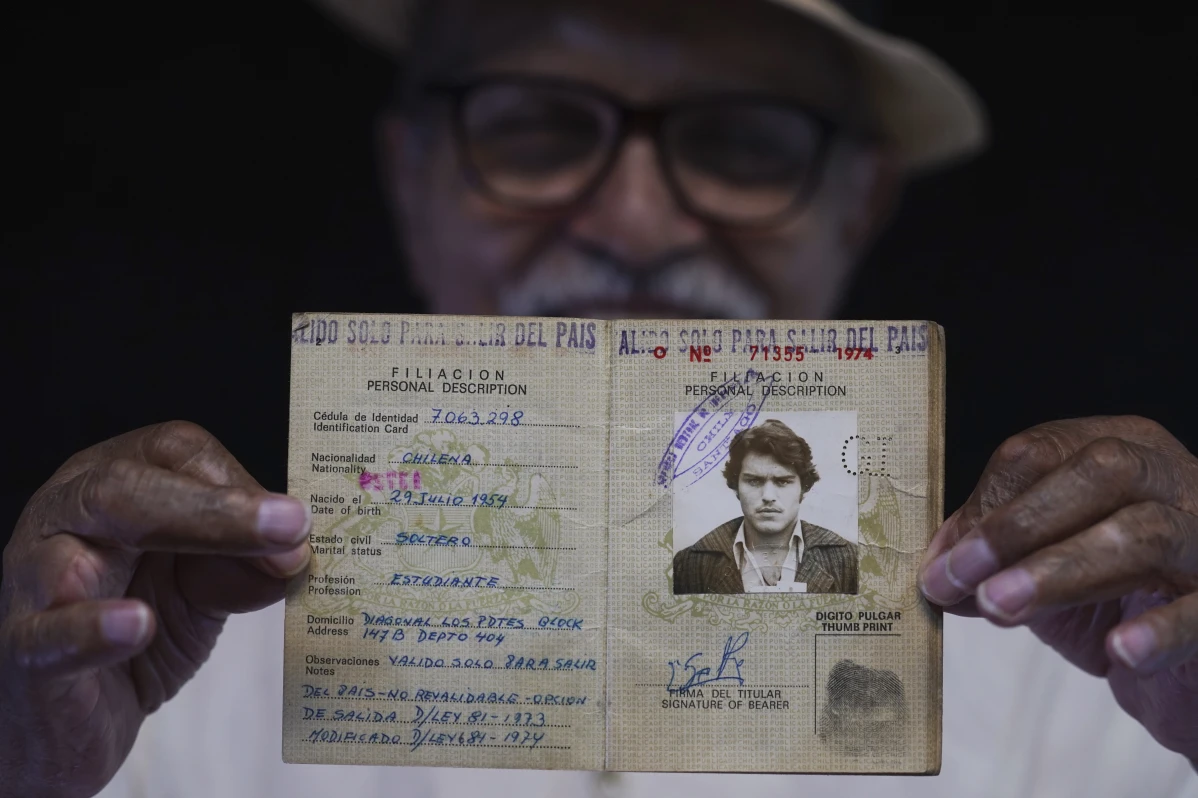 ALIDO SOLO PARA SALIR DEL PAIS
2
FILIACION
PERSONAL DESCRIPTION
Cédula de Identidad 7.063.298
Identification Card
Nacionalidad CHILENA
Nationality
Nacido el 29 JULIO 1954
Date of birth
Estado civil SOLTERO
Marital status
Profesión ESTUDIANTE
Profession
Domicilio DIAGONAL LOS PDTES BLOCK
Address 147B DEPTO 404
Observaciones VALIDO SOLO PARA SALIR
Notes
DEL PAIS-NO REVALIDABLE-OPCION
DE SALIDA D/LEY 81-1973
MODIFICADO D/LEY 684-1974
ALIDO SOLO PARA SALIR DEL PAIS
Nº 71355 1974 3
FILIACION
PERSONAL DESCRIPTION
CHILE
SANTIAGO
DIGITO PULGAR
THUMB PRINT
FIRMA DEL TITULAR
SIGNATURE OF BEARER